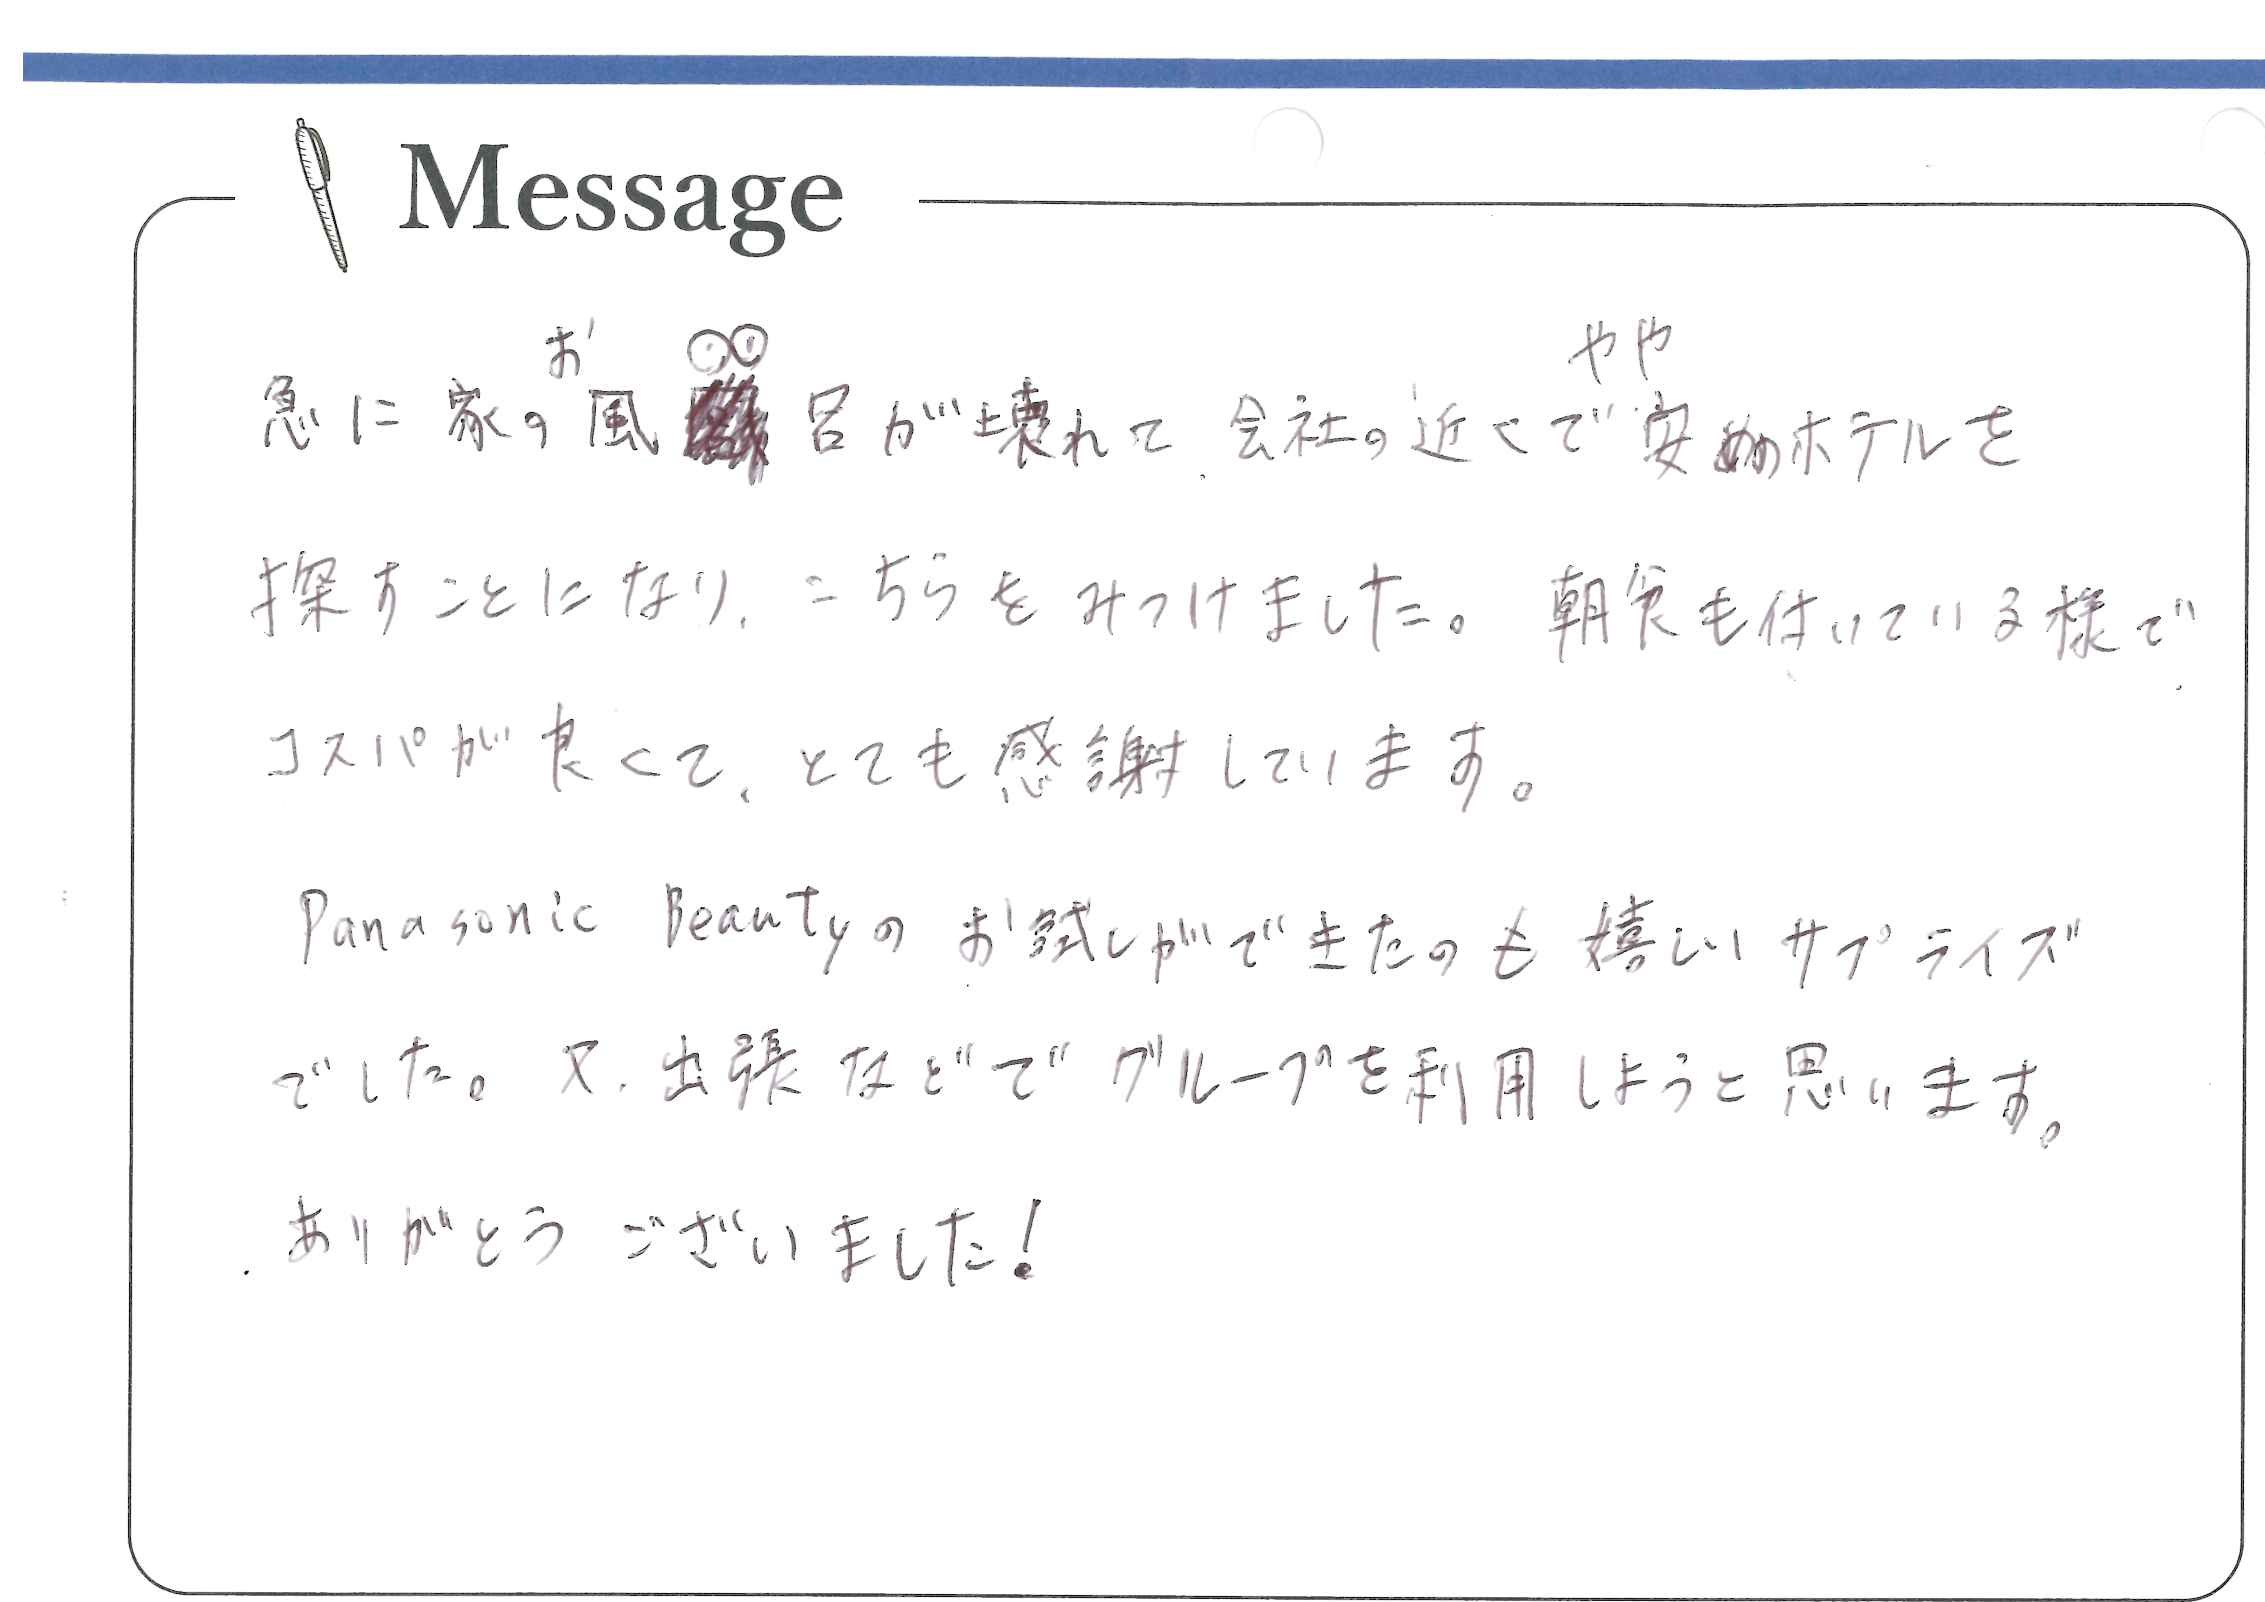 Message
急に家のお風呂が壊れて、会社の近くでやや安めのホテルを
探すことになり、こちらをみつけました。朝食も付いている様で、
コスパが良くて、とても感謝しています。
Panasonic Beautyのお試しができたのも嬉しいサプライズ
でした。又、出張などでグループを利用しようと思います。
ありがとうございました!